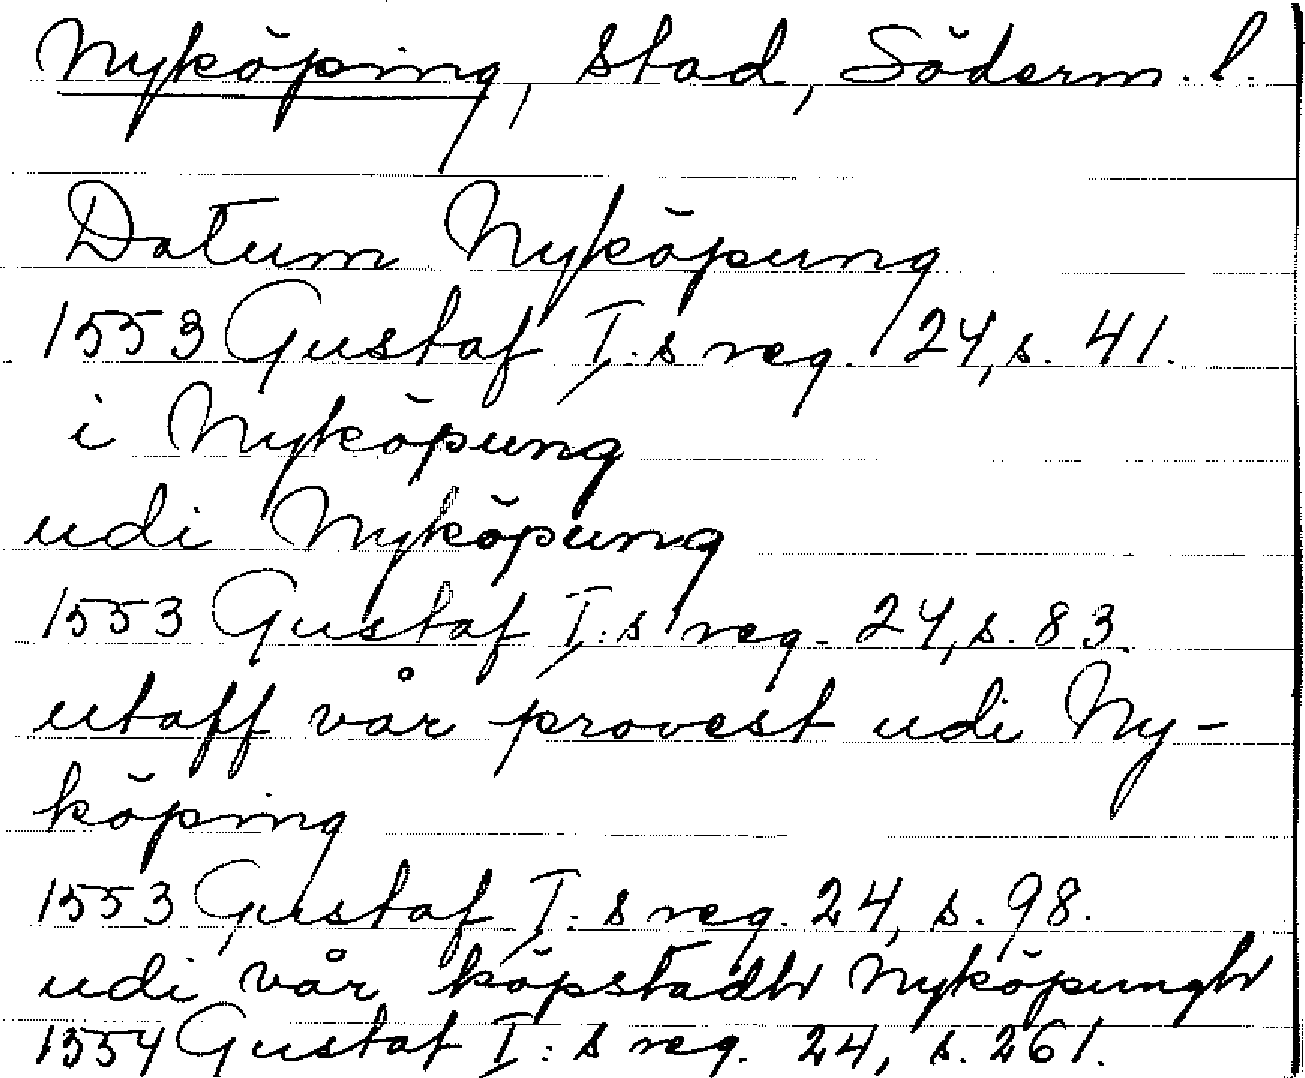 Nyköping, stad, Söderm. l.
Datum Nyköpung
1553 Gustaf I:s reg. 24, s. 41.
i Nyköpung
udi Nyköpung
1553 Gustaf I:s reg. 24, s. 83.
utaff vår provest udi Ny-
köping
1553 Gustaf I:s reg. 24, s. 98.
udi vår köpstadh Nyköpungh
1554 Gustaf I:s reg. 24, s. 261.